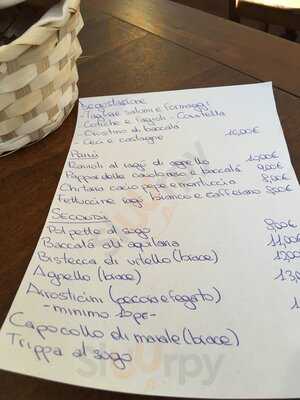 Degustazione
- Tagliere salumi e formaggi
- Cotiche e fagioli - Coratella
- Crostino di baccalà
- Ceci e castagne 10,00€
PRIMI
Ravioli al ragù di agnello 10,00€
Pappardelle e baccalà 9,00€
Chitarra cacio pepe e mentuccia 8,00€
Fettuccine ragù bianco e zafferano 8,00€
SECONDI
Polpette al sugo 8,00€
Baccalà all'aquilana 11,00€
Bistecca di vitello (brace)
Agnello (brace) 13,0
Arrosticini (pecora e fegato) 1
- minimo 10pz -
Capocollo di maiale (brace)
Trippa al sugo